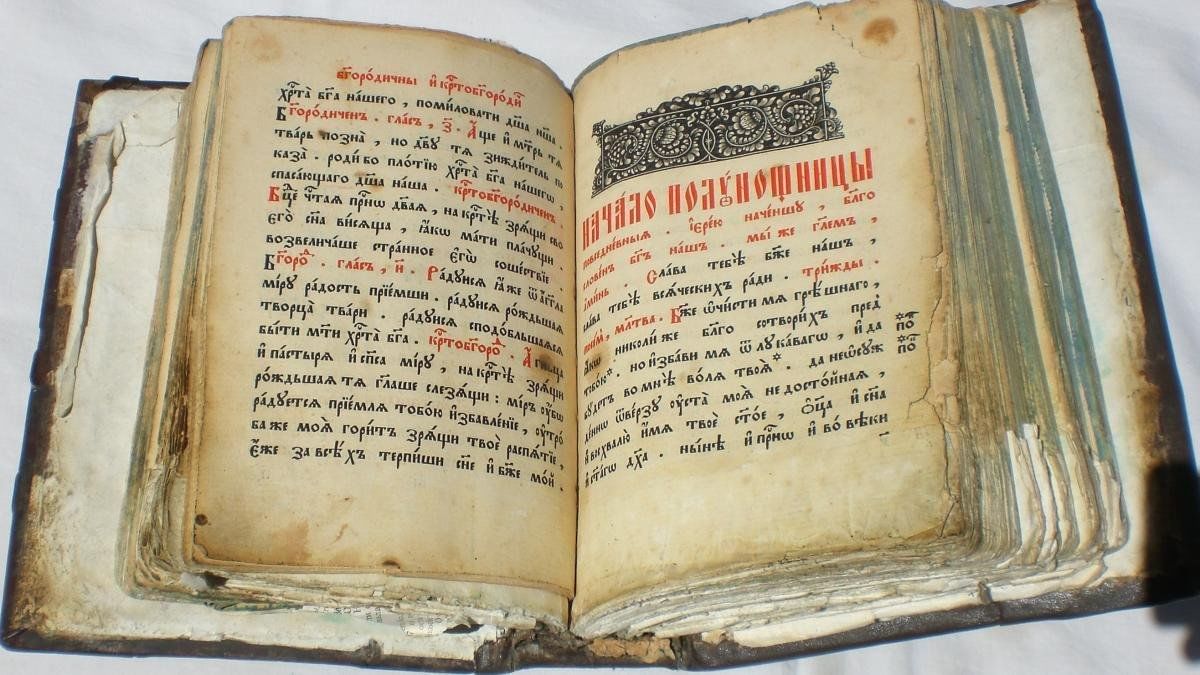 бг҃оро́дичны и҆ крⷭ҇тобг҃оро́дн
хрⷭ҇та̀ бг҃а на́шего , поми́ловати дш҃а на́ша .
Бг҃оро́диченъ . гла́съ , з҃ . А҆́ще и҆ мт҃рь тѧ̀
тва́рь позна̀ , но дв҃у тѧ̀ зижди́тель по
каза̀ . роди́ бо пло́тїю хрⷭ҇та̀ бг҃а на́шегѡ ,
спаса́ющаго дш҃а на́ша . крⷭ҇тобг҃оро́диченъ .
Бцⷣе чⷭ҇таѧ прⷭ҇нѡ дв҃аѧ , на крⷭ҇тѣ̀ зрѧ́щи сво
его̀ сн҃а ви́сѧща , ꙗ҆́кѡ ма́ти пла́чущи .
возвелича́ше стра́нное є҆гѡ̀ соше́ствїе .
Бг҃оро́ⷣ . гла́съ , и҃ . Ра́дуисѧ ꙗ҆́же ѿ а҆́гг҃ла
мі́ру ра́дость прїе́мши . ра́дуисѧ ро́ждьшаѧ
творца̀ тва́ри . ра́дуисѧ сподо́бльшаѧсѧ
бы́ти мт҃и хрⷭ҇та̀ бг҃а . крⷭ҇тобг҃оро́ⷣ . А҆́гньца
и҆ па́стырѧ и҆ сп҃са мі́ру , на крⷭ҇тѣ̀ зрѧ́щи
ро́ждьшаѧ тѧ̀ гл҃аше слезѧ́щи : ми́ръ ᲂу҆́бѡ
ра́дуетсѧ прїе́млѧ тобо́ю и҆збавле́нїе , ᲂу҆тро́
ба же моѧ̀ гори́тъ зрѧ́щи твоѐ распѧ́тїе ,
є҆́же за всѣ́хъ терпи́ши сн҃е и҆ бж҃е мо́й .
Нача́ло полꙋ́нощницы
повседне́вныѧ . і҆ере́ю наче́ншу , бл҃го
слове́нъ бг҃ъ на́шъ . мы́ же гл҃емъ ,
а҆ми́нь . Сла́ва тебѣ̀ бж҃е на́шъ ,
сла́ва тебѣ̀ всѧ́ческихъ ра́ди . три́жды .
мл҃тва . Бж҃е ѡ҆чи́сти мѧ̀ грѣ́шнаго ,
ꙗ҆́кѡ николи́ же бл҃го сотвори́хъ пред̾
тобо́ю . но и҆зба́ви мѧ̀ ѿ лука́вагѡ , и҆ да
бу́детъ во мнѣ̀ во́лѧ твоѧ̀ . да неѡ҆су́ж
де́ннѡ ѿве́рзу ᲂу҆ста̀ моѧ̀ недосто́йнаѧ ,
и҆ восхвалю̀ и҆́мѧ твоѐ ст҃о́е , ѻ҆ц҃а и҆ сн҃а
и҆ ст҃а́гѡ дх҃а . ны́нѣ и҆ прⷭ҇нѡ и҆ во́ вѣки